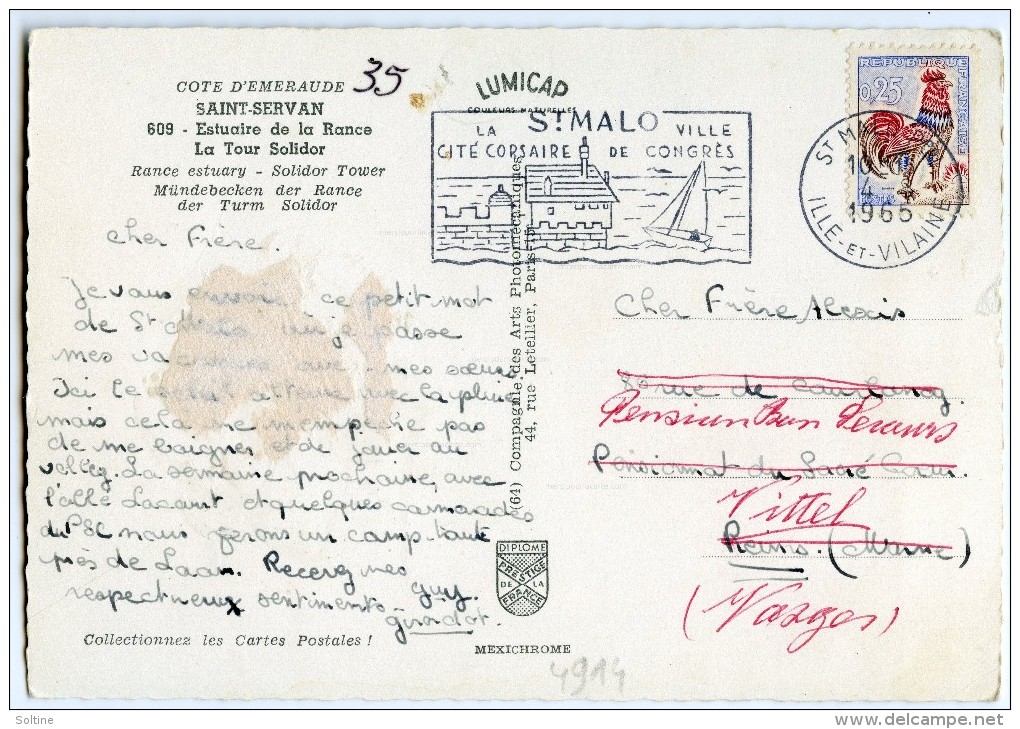 COTE D'EMERAUDE
35
SAINT-SERVAN
609 - Estuaire de la Rance
La Tour Solidor
Rance estuary - Solidor Tower
Mündebecken der Rance
der Turm Solidor
LUMICAP
COULEURS NATURELLES
ST MALO
LA VILLE
CITÉ CORSAIRE DE CONGRÈS
REPUBLIQUE FRANÇAISE
0,25
POSTES
ST M
10
4-
1965
ILLE-ET-VILAINE
Cher Frère.
Je vous envoie ce petit mot
de St Malo où je passe
mes vacances avec mes sœurs
Ici le soleil alterne avec la pluie
mais cela ne m'empêche pas
de me baigner et de jouer au
volley. La semaine prochaine, avec
l'abbé et quelques camarades
du PSC nous ferons un camp tente
près de Laon. Recevez mes
respectueux sentiments
guy
girardot.
(64) Compagnie des Arts Photomécaniques
44, rue Letellier, Paris-15e
Cher Frère Alexis
rue de
Pension Bon Secours
Pensionnat du Sacré Cœur.
Vittel
Reims. (Marne)
(Vosges)
DIPLOME
PRESTIGE
DE LA
FRANCE
Collectionnez les Cartes Postales !
MEXICHROME
4914
Soltine
www.delcampe.net